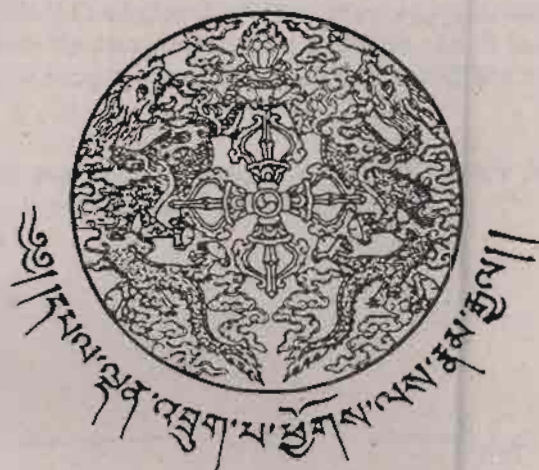 ༄༅།།དཔལ་ལྡན་འབྲུག་པ་ཕྱོགས་ལས་རྣམ་རྒྱལ།།